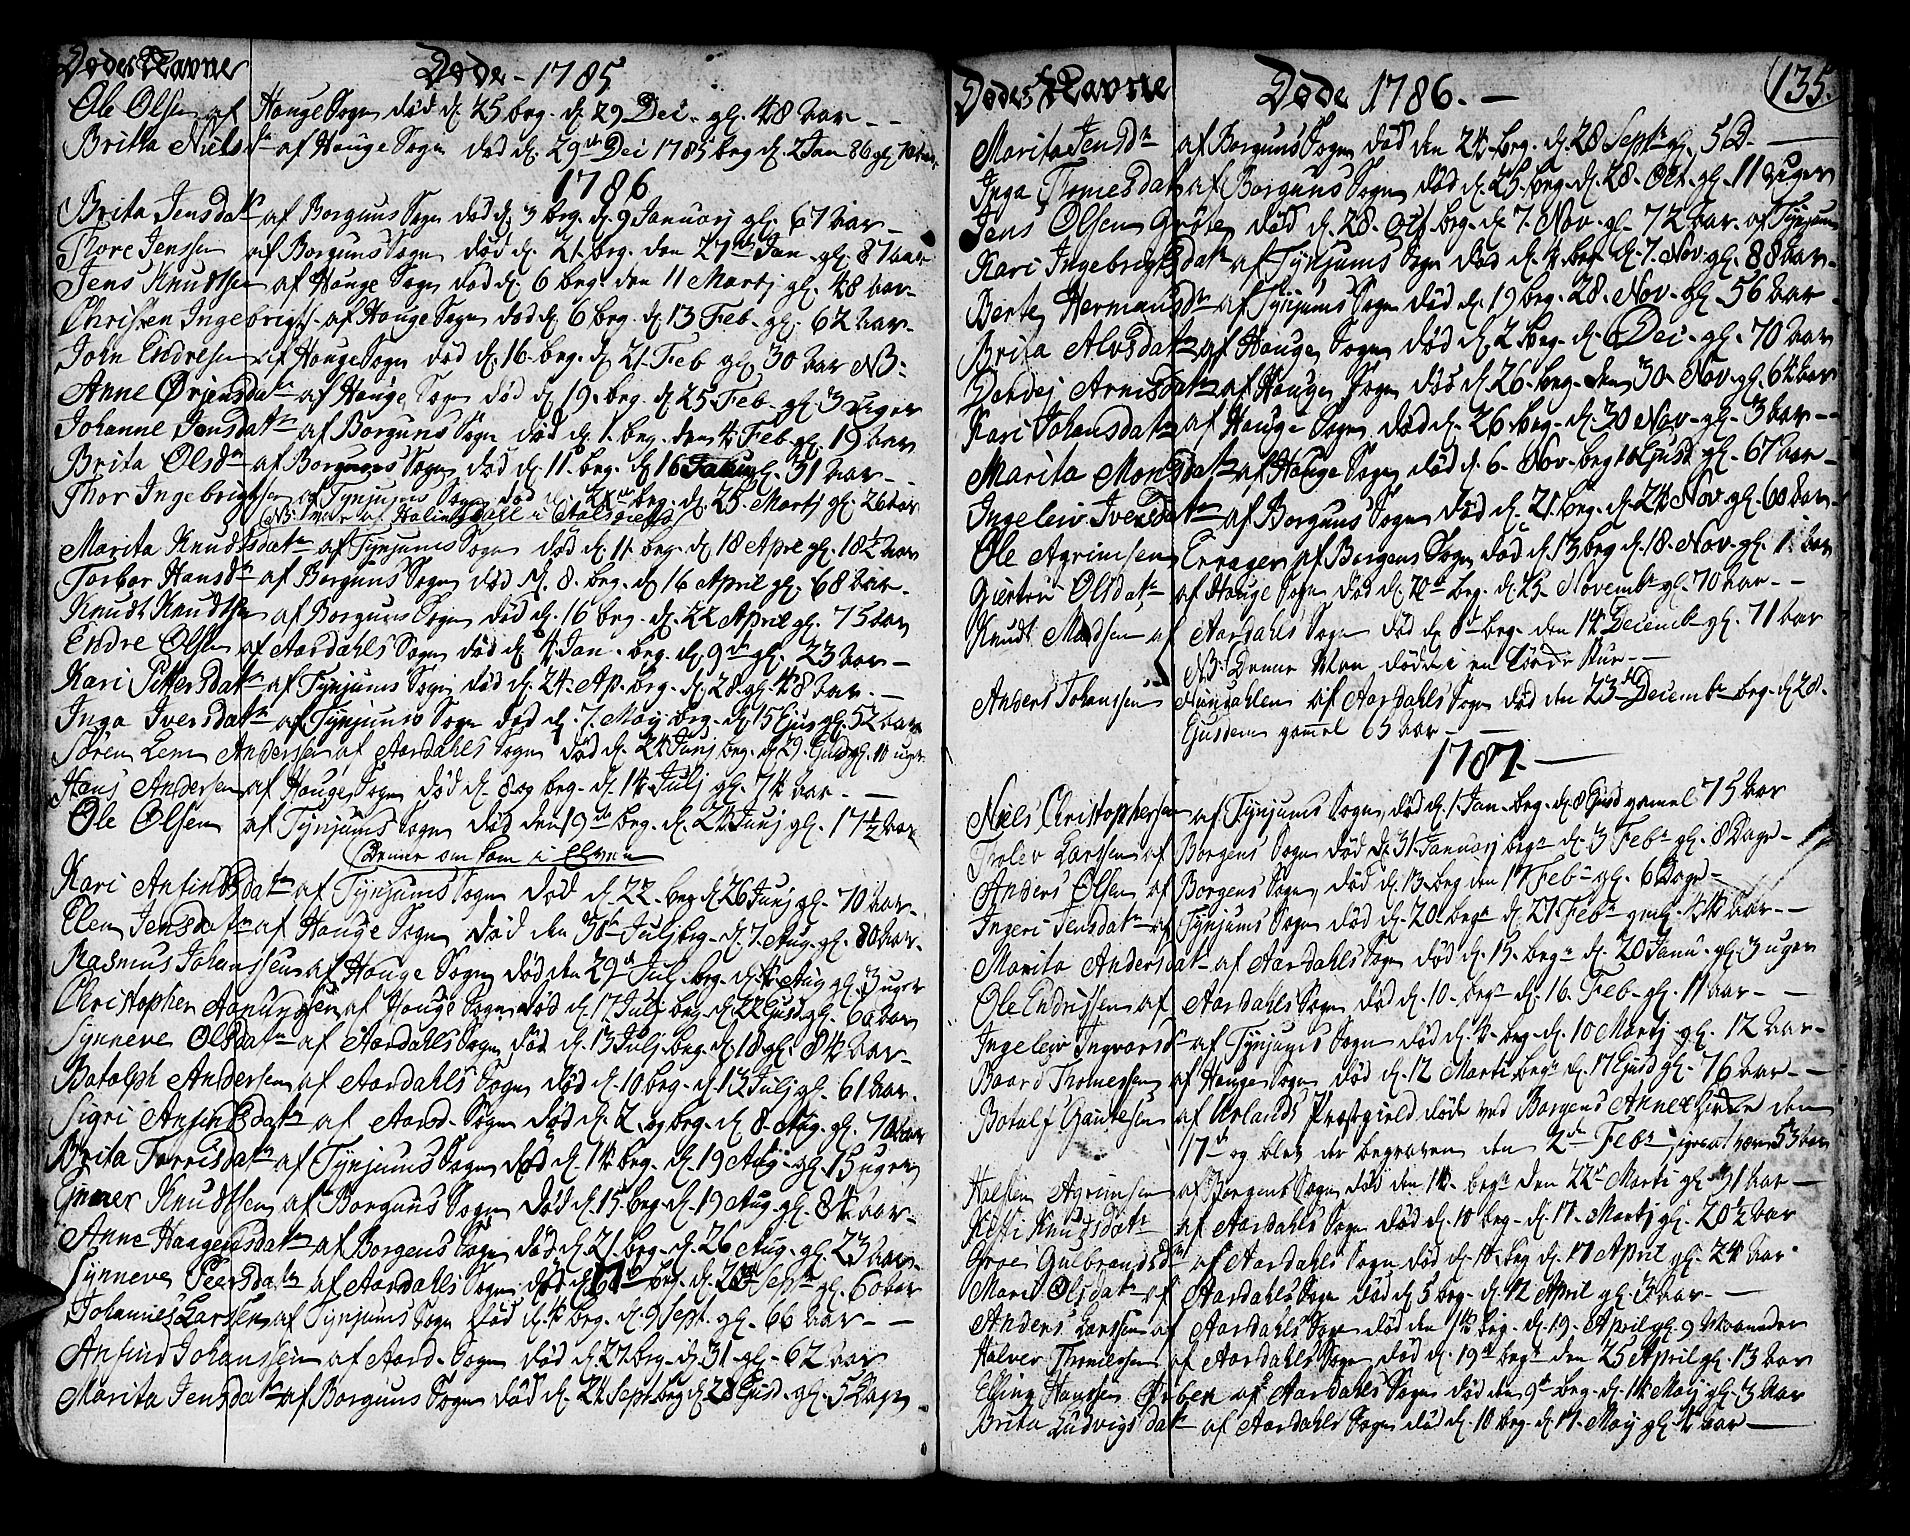 Dødes Navne Døde - 1785
Ole Olsen af Houge Sogn død d. 25 beg. d. 29 Dec. gl. 48 aar - -
Britta Niels af Houge Sogn død d. 29 Dec 1785 beg d. 2 Jan 86 gl. 70
1786
Brita Jensdatr af Borguns Sogn død d. 3 beg. d. 9 Januarj gl. 67 aar -
Thore Jenssen af Borguns Sogn død d. 21 beg. den 27de Jan gl. 87 aar
Jens Knudtsen af Houge Sogn død d. 6 beg. den 11 Martj gl. 48 aar
Christen Ingebrigts. af Houge Sogn død d. 6 beg. d. 13 Feb. gl. 62 aar
John Endresen af Houge Sogn død d. 16 beg. d. 21 Feb gl. 30 aar NB.
Anne Ørjensdatr af Houge Sogn død d. 19. beg. d. 25 Feb. gl. 3 uger
Johanne Jensdatr af Borguns Sogn død d. 1. beg. den 4 Feb. gl. 19 aar
Brita Olsdr af Borguns Sogn død d. 11. beg. d. 16 gl. 31 aar -
Thor Ingebrigtsen af Tynjums Sogn død d. beg. d. 25 Martj gl. 26 aar
NB. var af
Marita Knudtsdatr af Tynjums Sogn død d. 11 beg. d. 18 Apr. gl. 18½ aar
Torbor Hansdr af Borguns Sogn død d. 8. beg. d. 16 April gl. 68 aar.
Knudt Knudtsen af Borguns Sogn død d. 16 beg. d. 22 April gl. 75 aar
Endre Olsen af Aardahls Sogn død d. 4 Jan. beg. d. 9de gl. 23 aar -
Kari Pettersdatr af Tynjums Sogn død d. 24. Ap. beg. d. 28. gl. 48 aar. -
Inga Iversdatr af Tynjums Sogn død d. 7. Maij beg. d. 15 Ejus gl. 52 aar
Søren Lem Andersen af Aardahls Sogn død d. 24 Junj beg. d. 29. gl. 11 uger
Hans Andersen af Houge Sogn død d. 8 og beg. d. 14 Julj gl. 74 aar. -
Ole Olsen af Tynjums Sogn død den 19de beg. d. 24 Junj gl. 17½ aar
(Denne om kom i Elven
Kari Anfindsdatr af Tynjums Sogn død d. 22. beg. d. 26 Junj gl. 70 aar.
Elen Jensdatr af Houge Sogn død den 31 Julj beg. d. 7. Aug. gl. 80 aar.
Rasmus Johanssen af Houge Sogn død den 29 Jul. beg. d. 4 Aug gl. 3 uger
Christopher Aamundsen af Houge Sogn død d. 17 Julj beg. d. 22 Ejusd gl. 60 aar
Synneve Olsdatr af Aardahls Sogn død d. 13 Julj beg. d. 18. gl. 84 aar.
Botolph Andersen af Aardahls Sogn død d. 10 beg. d. 13 Julj gl. 61 aar.
Sigri Anfindsdatr af Aard. Sogn død d. 2. og beg. d. 8. Aug. gl. 70 aar
Brita Torrisdatr af Tynjums Sogn død d. 14 beg. d. 19 Aug. gl. 15 uger
Knudtsen af Borguns Sogn død d. 15 beg. d. 19 Aug. gl. 84 aar.
Anne Haagensdatr af Borgens Sogn død d. 21. beg. d. 26 Aug. gl. 23 aar.
Synneve Peersdatr af Aardahls Sogn død d. 17 beg. d. Septr gl. 60 aar
Johannes Larsen af Tynjums Sogn død d. 4 beg. d. 9 Sept. gl. 66 aar - -
Anfind Johanssen af Aard. Sogn død d. 27. beg. d. 31 gl. 62 aar
Marita Jensdatr af Borguns Sogn død d. 24 Sept. beg d. 28 Ejusd. gl. 5 Dage
135.
Dødes Navne Døde 1786. -
Marita Jensdr af Borguns Sogn død den 24. beg. d. 28 Septr gl. 5 D. -
Inga Thomesdatr af Borguns Sogn død d. 25. beg. d. 28. Oct. gl. 11 uger
Jens Olsen Grøte død d. 28. Oct. beg. d. 7. Nov. gl. 72 aar. af Tynjum
Kari Ingebrigtsdatr af Tynjums Sogn død d. 4 beg. d. 7. Nov. gl. 88 aar.
Berte Hermansdr af Tynjums Sogn død d. 19 beg. 28. Nov. gl. 56 aar -
Brita Alvsdatr af Houge Sogn død d. 2 beg. d. Dec. gl. 70 aar
Dordej Arnisdatr af Houge Sogn død d. 26. beg. den 30 Nov. gl. 64 aar
Kari Johansdatr af Houge Sogn død d. 26. beg. d. 30 Nov. gl. 3 aar -
Marita Monsdatr af Houge Sogn død d. 6. Nov. beg. 10 Ejusd. gl. 67 aar -
Ingeleiv Iversdatr af Borguns Sogn død d. 21. beg. d. 24 Nov. gl. 60 aar.
Ole Agrimsen Eraager af Borgens Sogn død d. 13 beg. d. 18. Nov. gl. 1 aar
Giertru Olsdatr af Houge Sogn død d. beg. d. 25. Novembr gl. 70 aar. -
Knudt Madsen af Aardahls Sogn død d. 8de beg. den 14 Decembr gl. 71 aar
NB. Denne Man døde i en - -
Anders Johanssen af Aardahls Sogn død den 23de Decembr beg. d. 28.
Ejusdem gammel 65 aar - -
1787. -
Niels Christophersen af Tynjums Sogn død d. 1. Jan. beg. d. 8 Ejusd gamel 75 aar
Tholev Larssen af Borgens Sogn død d. 31. Januarj begr d. 3 Febr gl. 8 Dage -
Anders Olsen af Borgens Sogn død d. 13. beg den 17 Febr gl. 6 Dage -
Ingeri Jensdatr af Tynjums Sogn død d. 20. begr d. 27. Febr gml. 44 aar. -
Marita Andersdatr af Aardahls Sogn død d. 15. begr d. 20 Janu. gl. 3 uger
Ole Endrissen af Aardahls Sogn død d. 10. begr d. 16. Feb. gl. 11 aar - -
Ingeleiv Ingvarsdr af Tynjums Sogn død d. 4. beg. d. 10 Martj gl. 12 aar -
Baard Thomessen af Houge Sogn død d. 12 Marti begr d. 17 Ejusd gl. 76 aar - -
Botolf Gautesen af Urlands Præstgield døde ved Borgens Annex Kirke den
17de og blev der begraven den 2de Febr 53 aar
Halsten Agrimsen af Borgens Sogn død den 14. begr den 22de Marti gl. 31 aar -
Knutsdatr af Aardahls Sogn død d. 10 beg. d. 17. Martj gl. 20½ aar
Groe Gulbrandsdr af Aardahls Sogn død d. 10. beg d. 17 April gl. 24 aar.
Mari Olsdatr af Aardahls Sogn død d. 5 beg. d. 12 April gl. 3 aar. -
Anders Larssen af Aardahls Sogn død den 14 beg. d. 19. April gl. 9 Maaneder
Halver Thomessen af Aardahls Sogn død d. 19de begr den 25 April gl. 13 aar
Elling Hanssen af Aardahls Sogn død den 9de beg. d. 14 Maij gl. 3 aar
Brita Ludvigsdatr af Aardahls Sogn død d. 10 beg. d. 17. Maij gl. 4 aar -